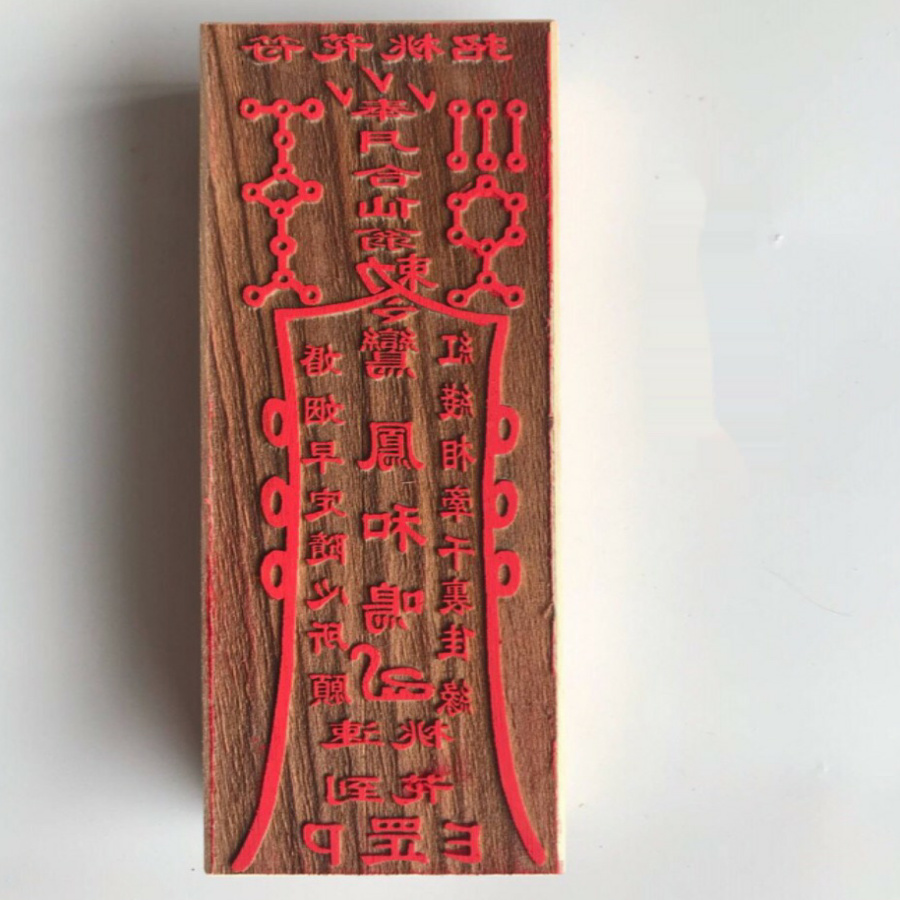 招桃花符
奉月合仙翁勅令鸞鳳和鳴
紅綫相牽千裏佳緣
婚姻早定隨心所願
桃花
速到
罡